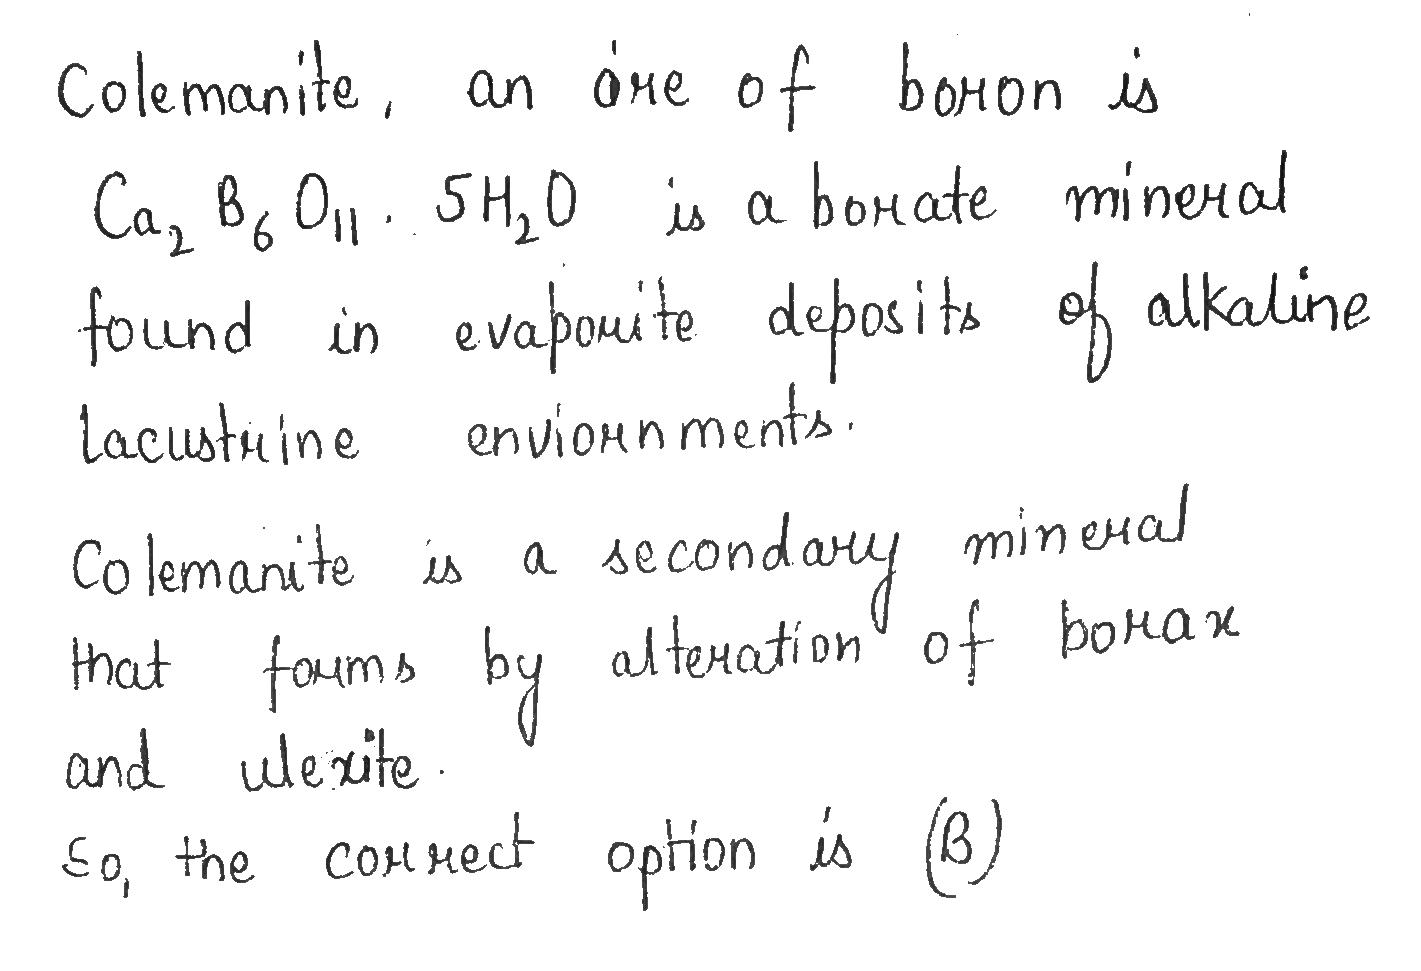 Colemanite, an ore of boron is
Ca₂ B₆ O₁₁ . 5H₂O is a borate mineral
found in evaporite deposits of alkaline
lacustrine enviornments.
Colemanite is a secondary mineral
that forms by alteration of borax
and ulexite.
So, the correct option is (B)